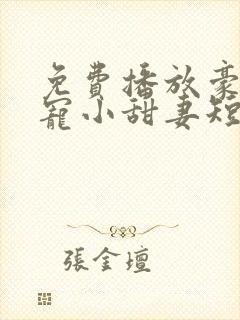 免費播放豪
寵小甜妻短
張金壇